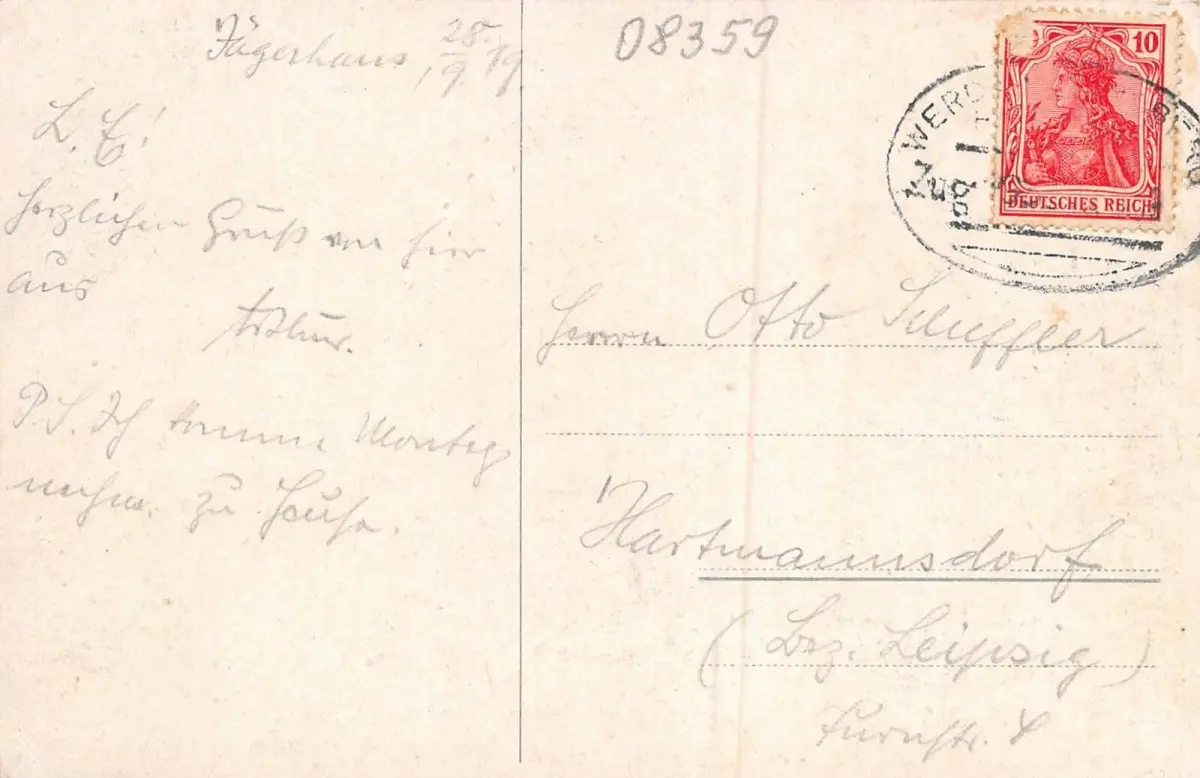 Jägerhaus, 28/9 19.
L. E!
Herzlichen Gruß von hier
aus
Arthur.
P.S. Ich komme Montag
nachm. zu Hause.
08359
10
DEUTSCHES REICH
ZUG
Herrn Otto Scheffler
Hartmannsdorf
(Bez. Leipzig)
Turnstr.